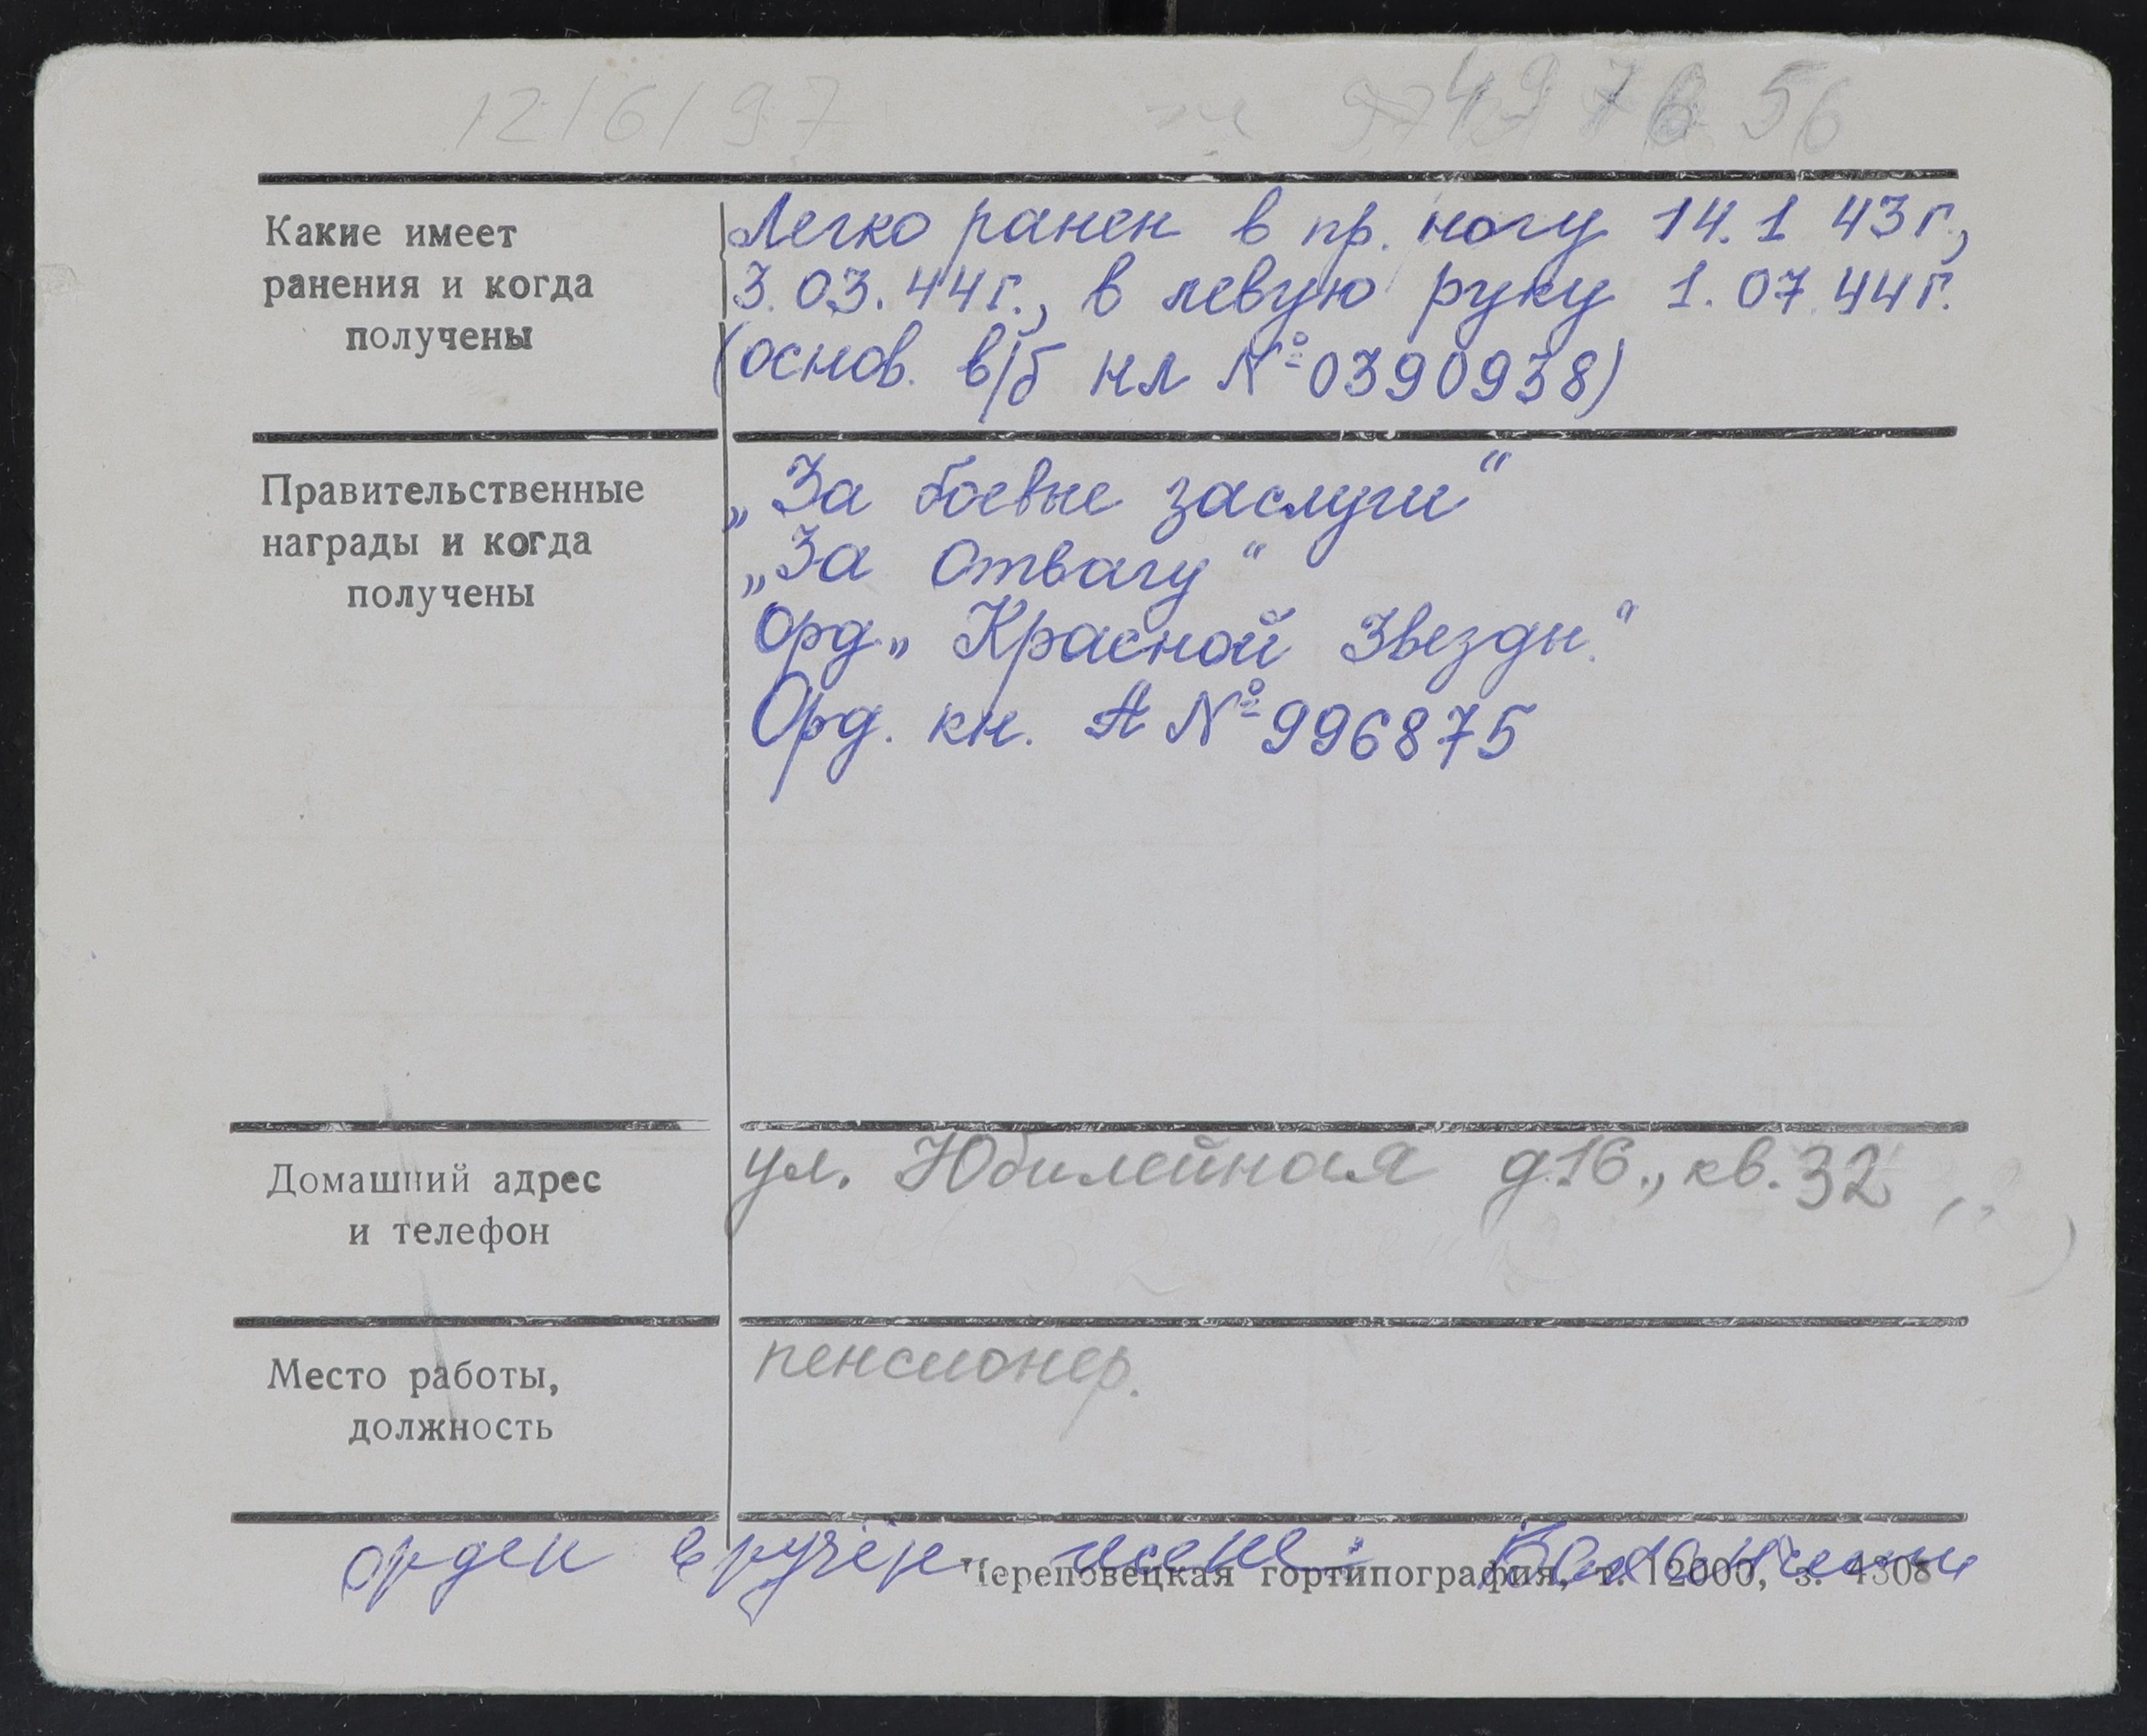 12/6/97
497656
Какие имеет
ранения и когда
получены
Легко ранен в пр. ногу 14.1 43г.,
3.03.44г., в левую руку 1.07.44г.
(основ. в/б нл №0390938)
Правительственные
награды и когда
получены
„За боевые заслуги“
„За Отвагу“
Орд. „Красной Звезды.“
Орд. кн. А №996875
Домашний адрес
и телефон
ул. Юбилейная д.16., кв. 32
Место работы,
должность
пенсионер.
орден вручён жене:
Череповецкая гортипография, т. 12000, з. 4308